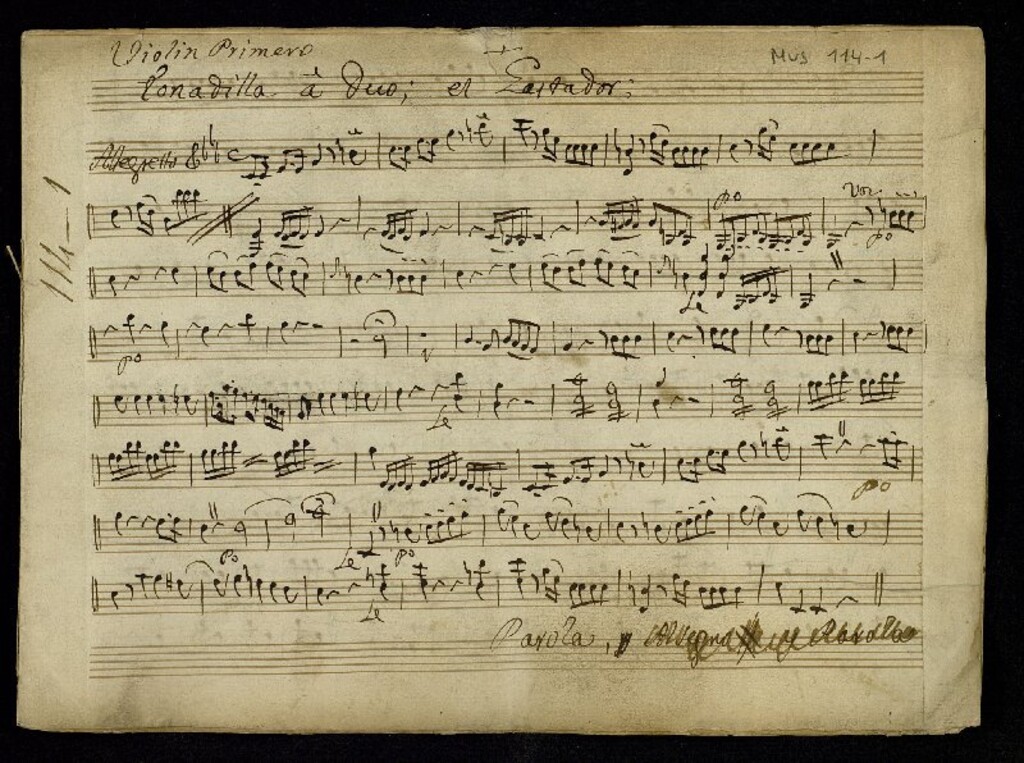 Violin Primero
MUS 114-1
Tonadilla â Duo; el Gastador;
Allegretto
po
Voz
po
Le
po
Le
po
Le
po
Po
Le
Parola,
114-1